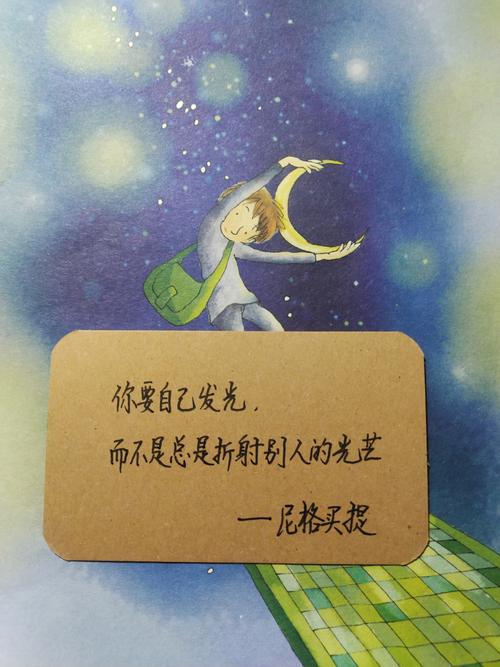 你要自己发光,
而不是总是折射别人的光芒
——尼格买提